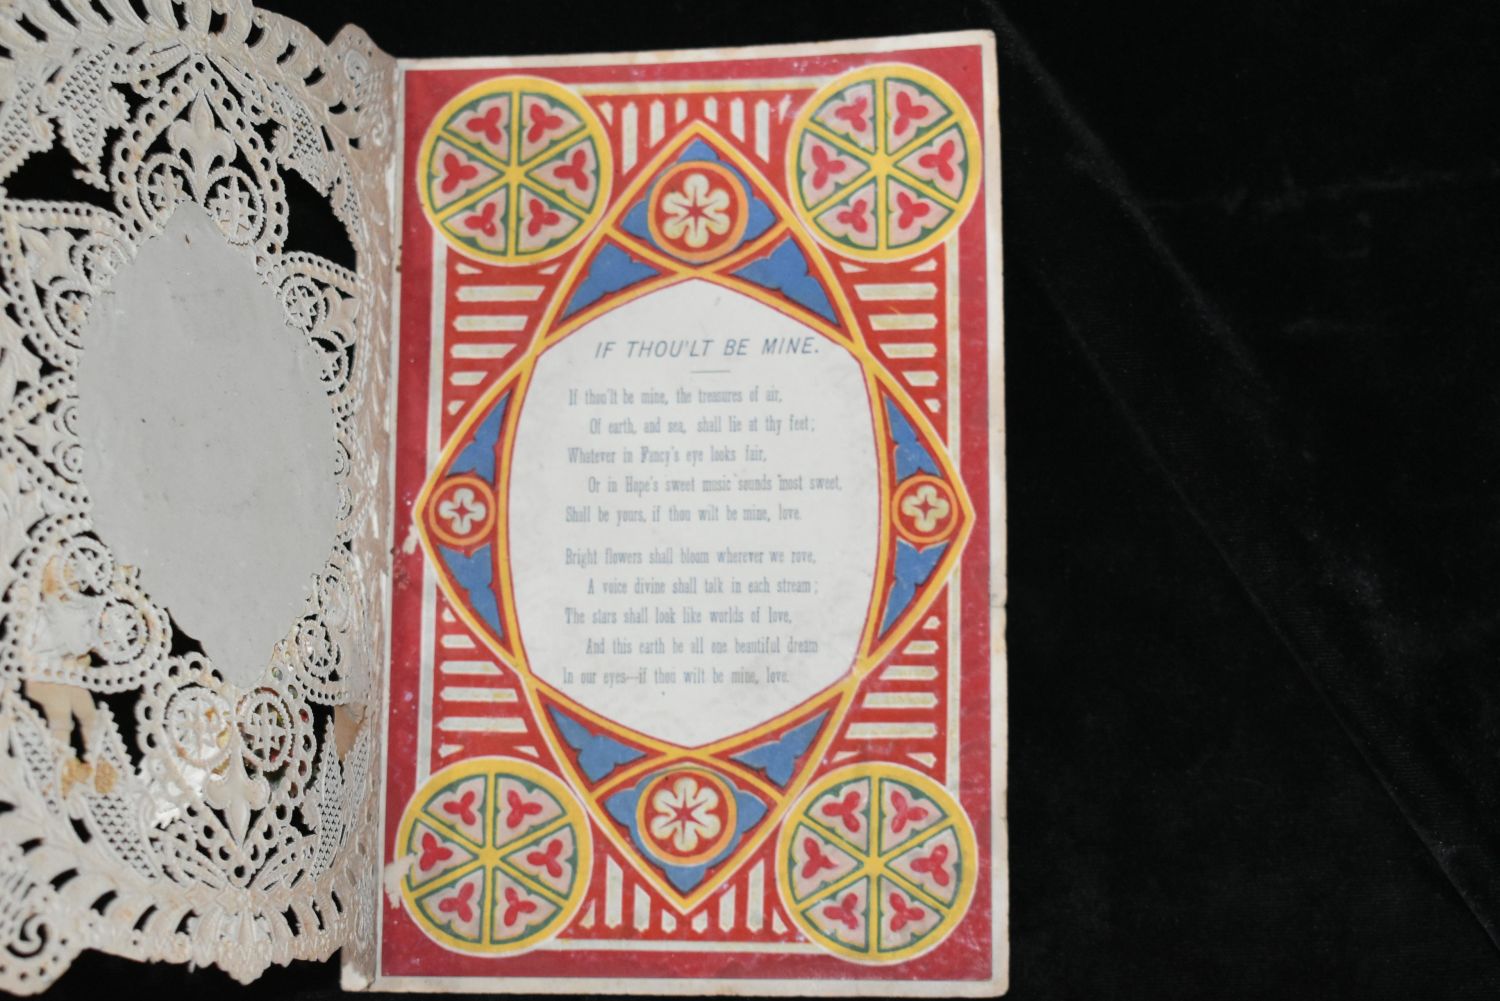 IF THOU'LT BE MINE.
If thou'lt be mine, the treasures of air,
Of earth, and sea, shall lie at thy feet;
Whatever in Fancy's eye looks fair,
Or in Hope's sweet music sounds most sweet,
Shall be yours, if thou wilt be mine, love.
Bright flowers shall bloom wherever we rove,
A voice divine shall talk in each stream;
The stars shall look like worlds of love,
And this earth be all one beautiful dream
In our eyes—if thou wilt be mine, love.